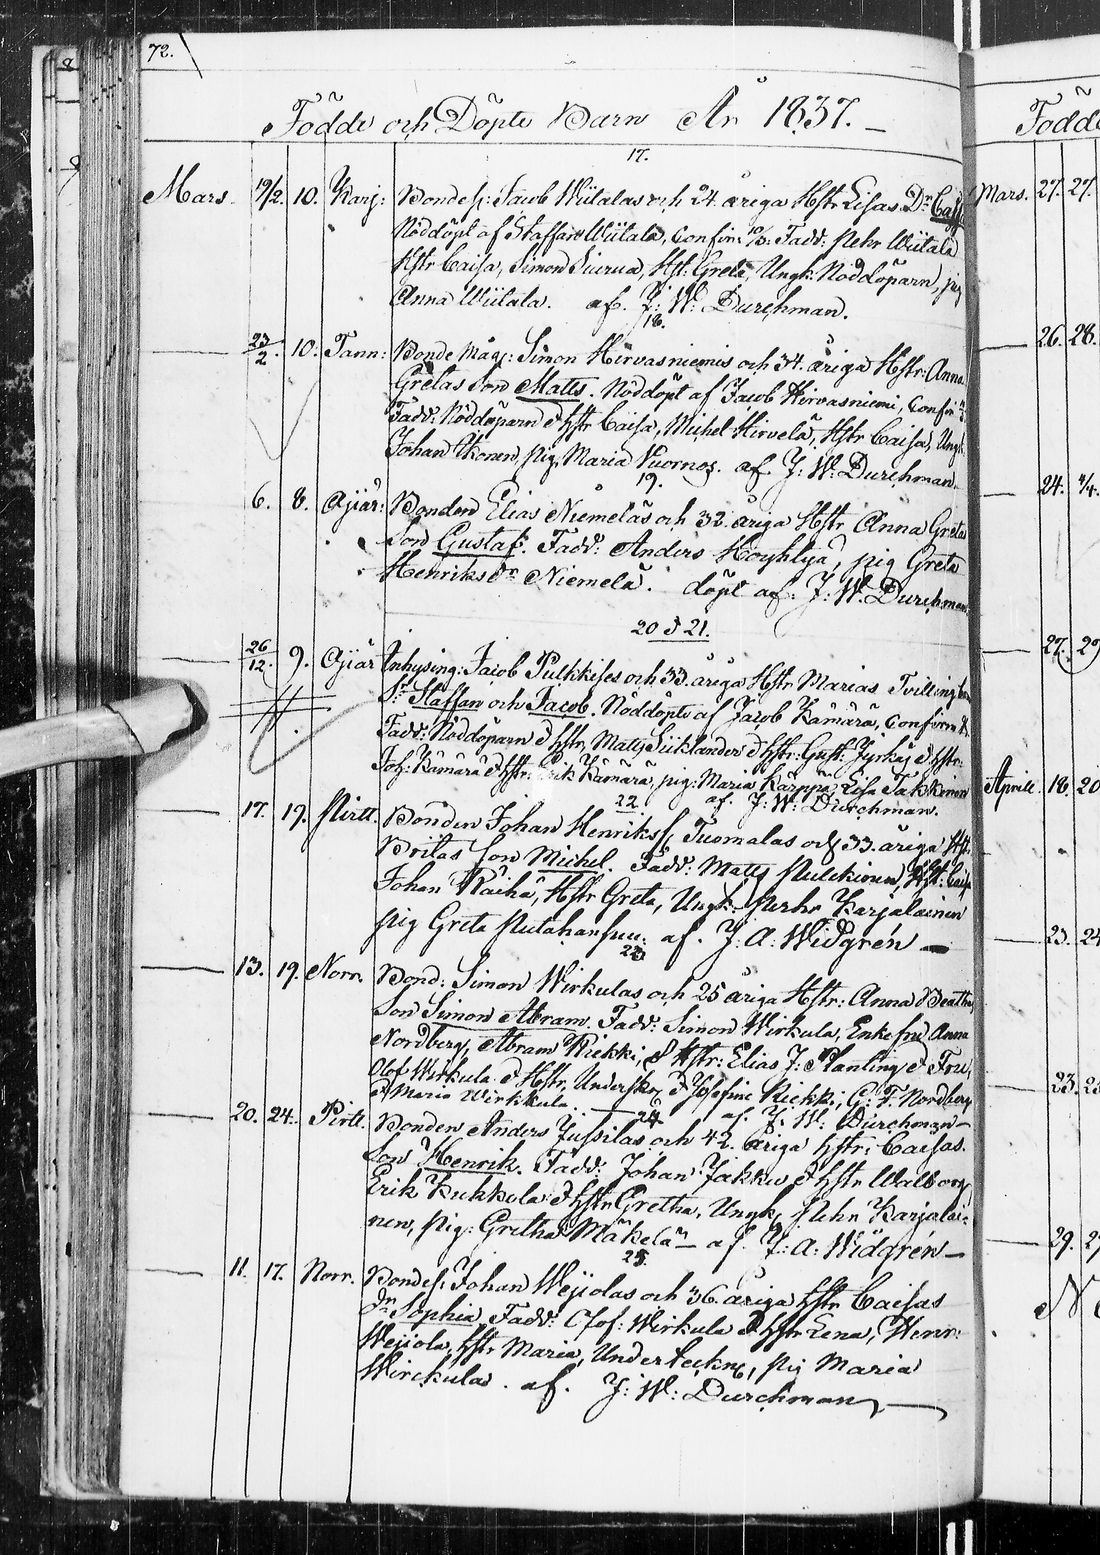 72.
Födde och Döpte Barn År 1837.
17.
Mars. 19/2. 10. Karj: Bondes: Jacob Wiitalas och 24. åriga Hstr Lisas Dr
Nöddöpt af Staffan Wiitala, Confir: Fadd: Pehr Wiitala
Hstr Caisa, Simon Siurua, Hst: Greta, Ungk: Nöddöparn, pig
Anna Wiitala. af. J: W: Durchman.
18.
23/2. 10. Tann: Bonde Måg: Simon Hirvasniemis och 34. åriga Hstr: Anna
Gretas Son Matts. Nöddöpt af Jacob Hirvasniemi, Confir
Fadd: Nöddöparn & Hstr Caisa, Michel Hirvelä, Hstr Caisa, Ungk
Johan Ikonen, pig Maria Vuornos. af J: W: Durchman.
19.
6. 8. Ajiär: Bonden Elias Niemeläs och 32. åriga Hstr Anna Gretas
Son Gustaf. Fadd: Anders Höyhtyä, pig Greta
Henriksdr Niemelä. döpt af. J: W. Durchman
20 & 21.
26/12. 9. Ajiär Inhysing: Jacob Pulkkises och 33. åriga Hstr Marias Tvilling
Sr Staffan och Jacob. Nöddöpte af Jacob Kämärä, Confirm
Fadd: Nöddöparn & Hstr, Matts Siiklander & Hstr: Gust: Jyrkäs & Hstr:
Joh: Kämärä & Hstr: Erik Kämärä, pig: Maria Karppa, Lisa Takkinen
af. J: W: Durchman.
22.
17. 19. Pirtt. Bonden Johan Henrikss. Tuomalas och 33. åriga Hst.
Britas Son Michel. Fadd: Matts Pulckinen, Hst: Caisa
Johan Räihä, Hstr Greta, Ungk: Pehr Karjalainen
pig Greta af. J: A: Widgrén
23
13. 19. Norr. Bond: Simon Wirkulas och 25 åriga Hstr: Anna Beatha
Son Simon Abram. Fadd: Simon Wirkula, Enkefru Anna
Nordberg, Abram Riekki, & Hstr: Elias J: Planting & Fru,
Olof Wirkula & Hstr, Underskog & Josefine Riekki, C: F. Nordberg
& Maria Wirkkula. af. J: W: Durchman
24
20. 24. Pirtt. Bonden Anders Jussilas och 42. åriga Hstr: Caisas.
Son Henrik. Fadd: Johan Jakku & Hstr Walborg,
Erik Kukkola & Hstr Gretha, Ungk, Pehr Karjalai=
nen, Pig: Gretha Mäkelä af. J: A: Widgrén
25.
11. 17. Norr. Bondes: Johan Wejiolas och 36. åriga Hstr Caisas
Dr Sophia, Fadd: Olof: Wirkula & Hstr Lena, Henr:
Wejiola, Hstr Maria, Underteckne, Pig Maria
Wirckula. af. J: W: Durchman
Mars. 27. 27.
26. 28.
24.
27.
Aprill. 18. 20
23. 24
23.
29.